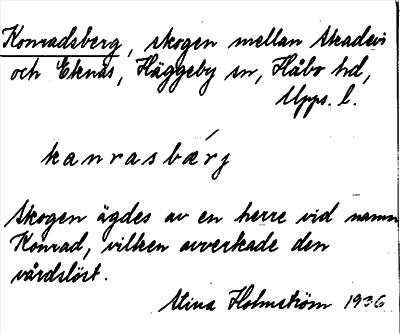 Konradsberg, skogen mellan Skadevi
och Eknäs, Häggeby sn, Håbo hd,
Upps. l.
kanrasbærj
Skogen ägdes av en herre vid namn
Konrad, vilken avverkade den
vårdslöst.
Stina Holmström 1936